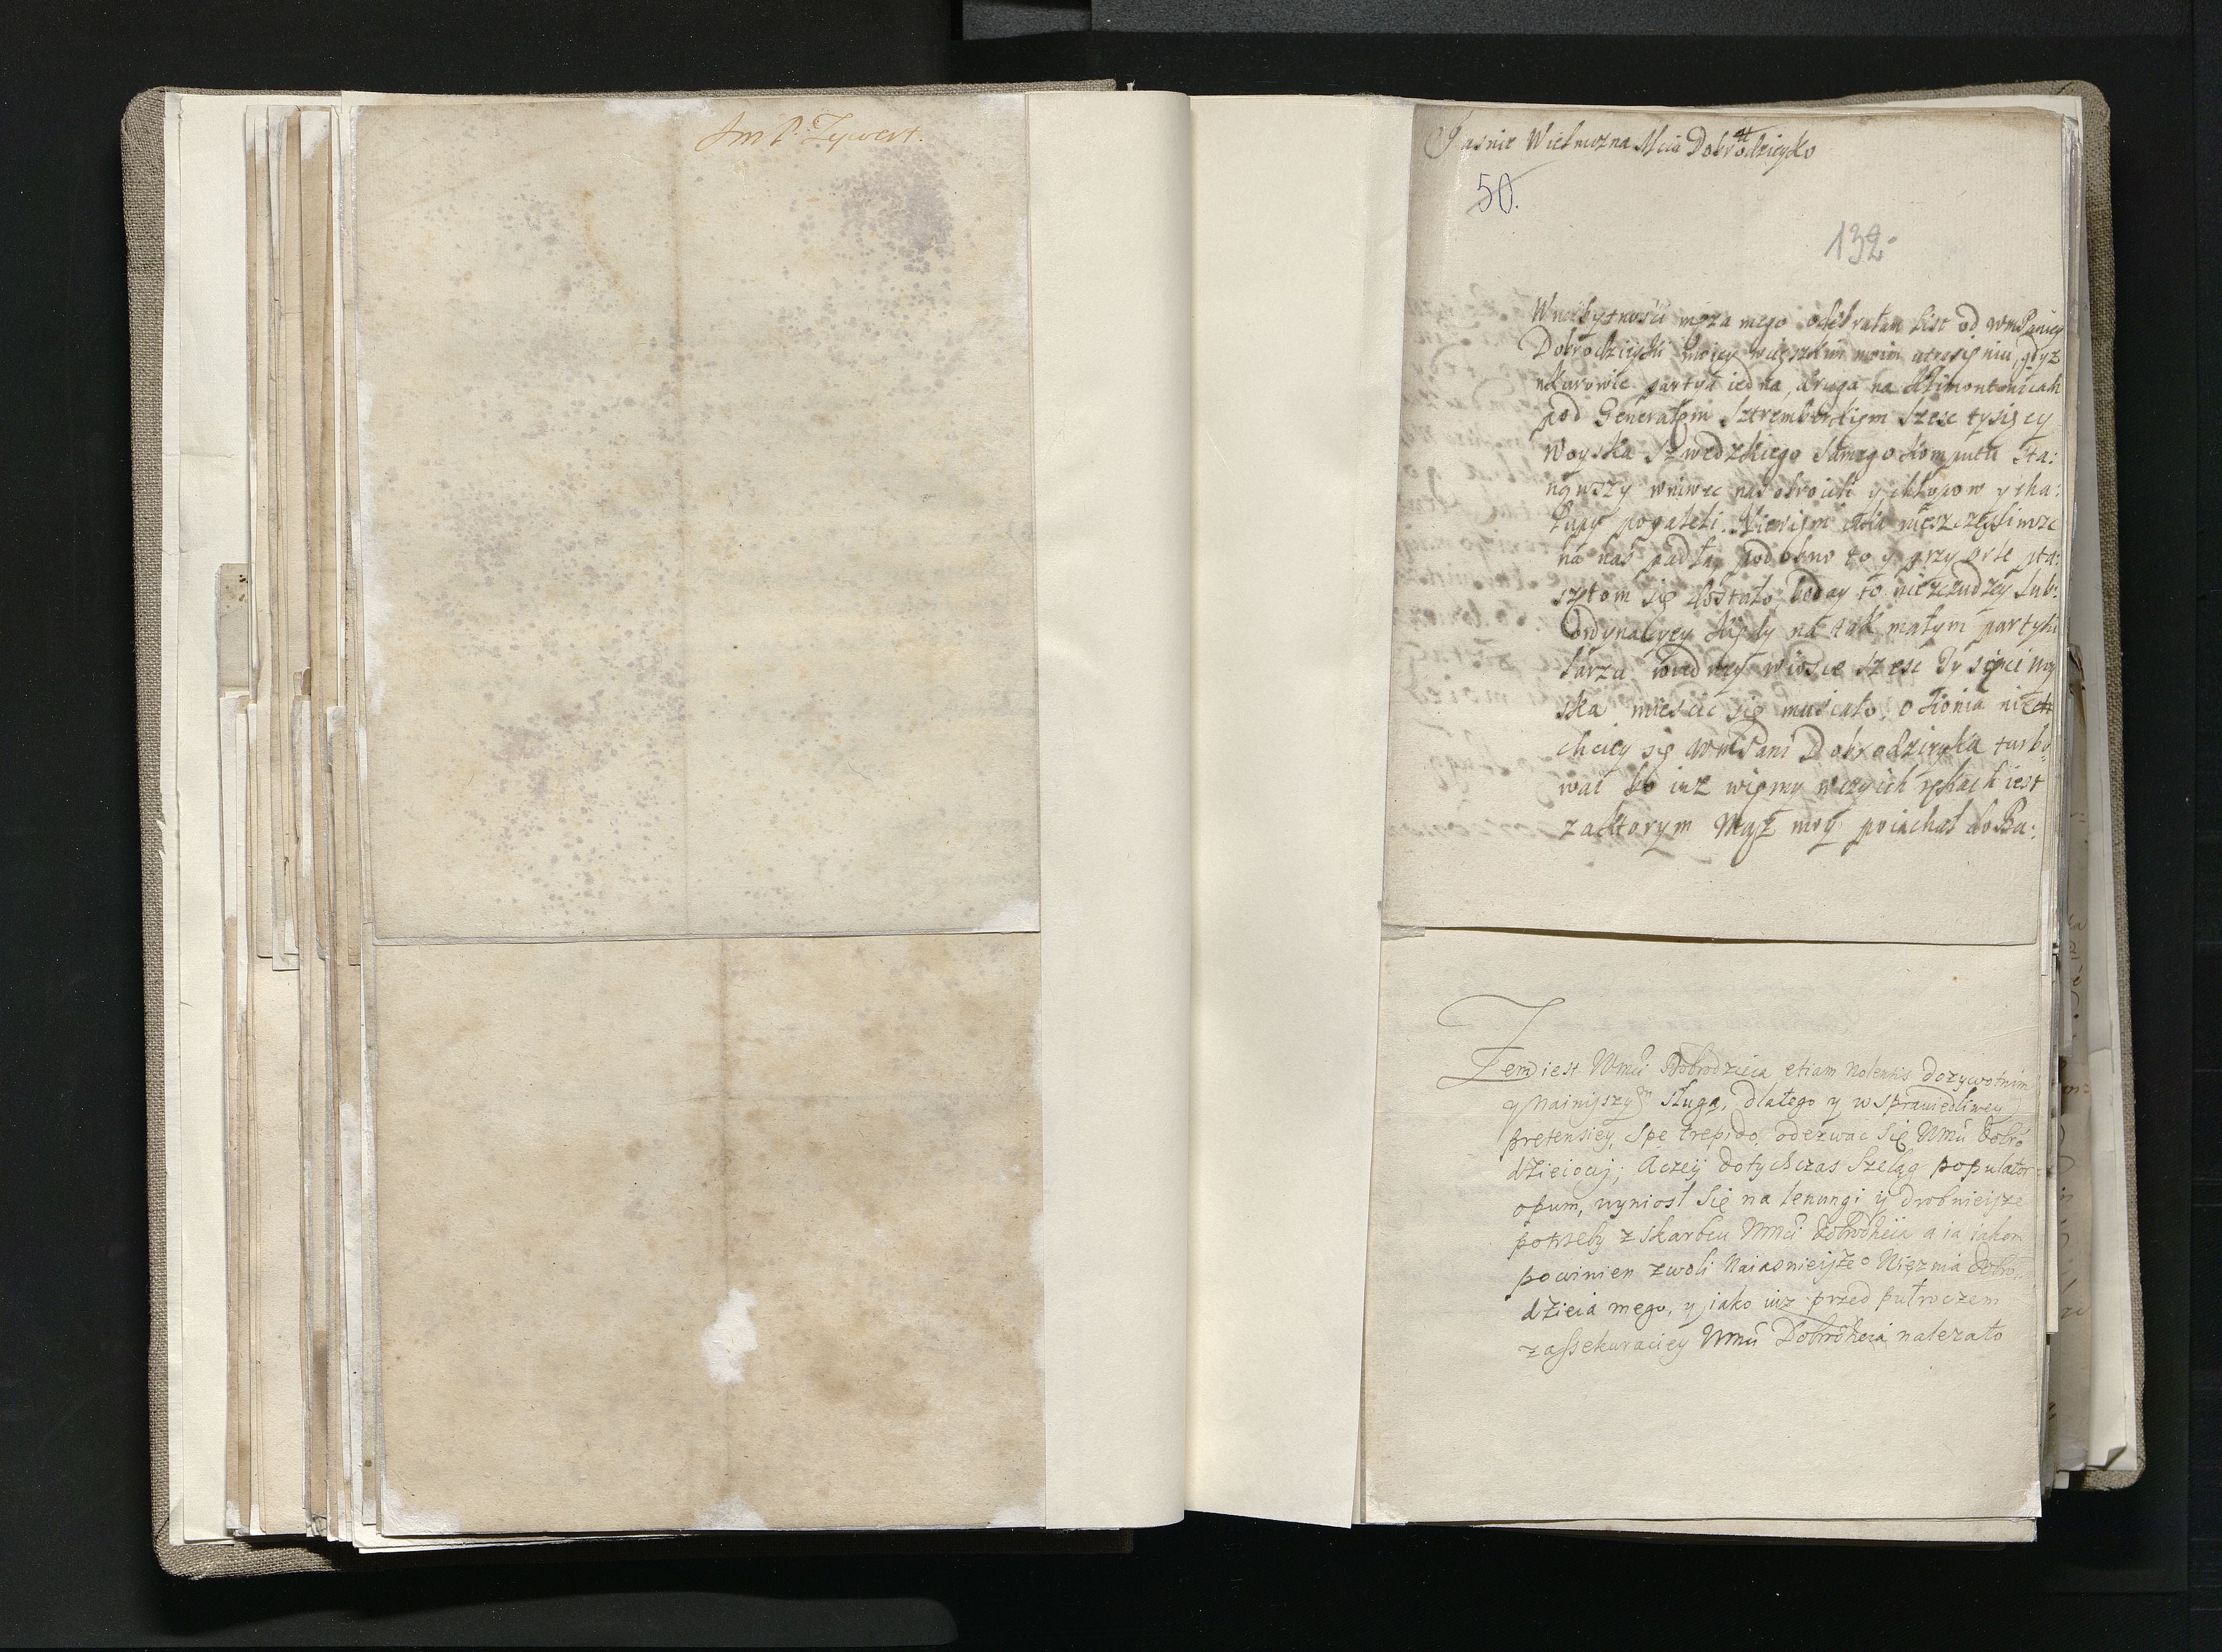 Im P. Zywert.
Jasnie Wielmozna Mcia Dobrodzieyko
50.
132
W niebytnosci męza mego odebrałam list od WmPaniey
Dobrodzieyki moiey w cięszkim moim utrapięniu, gdyz
partya iedna, druga na Klimontowicach
pod Generałem Sztremberkiem szesc tysięcy
Woyska Szwedzkiego samego komputu sta:
nąwszy wniwec nas obrocili y chłopow y cha:
łupy popalili.
na nas padła, podobno to y przy orle pta:
sztom się dostało, boday to
ordynacyey na tak małym party:
larza wiedney wiosce szesc Tysięci Woy
ska miescic się musiało, o konia niech
chciey się WmPani Dobrodzieyka turbo
wac bo iuz więmy w czyich rękach iest
zaktorym Mąz moy poiachał do Ba:
Zem iest Wmci Dobrodzieia etiam nolentis dozywotnim
y Nainizszym sługą, dlatego y w sprawiedliwey
pretensiey, Spe trepido, odezwac się Wmci Dobro
dzieiowi; Aczeÿ dotychczas Szeląg populator
opum, wyniosł się na lenungi ÿ drobnieysze
potrzeby z skarbcu Wmci Dobrodzieia a ia iakom
powinien zwoli Naiasnieysze° Więznia Dobro
dzieia mego, y iako iuz przed pułroczem
zassekuraciey Wmci Dobrodzieia nalezało